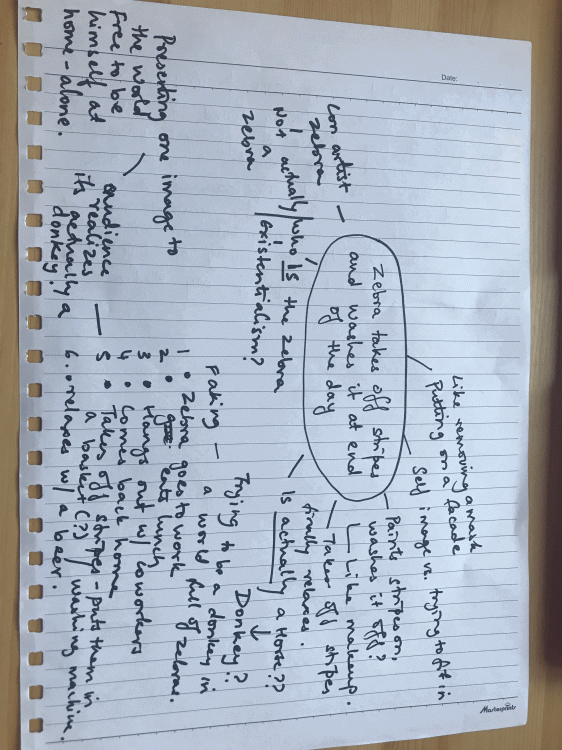 Date:
Con artist
zebra
Not actually
a
zebra
Who is the zebra
existentialism?
Zebra takes off stripes
and washes it at end
of the day
Like removing a mask
Putting on a facade
Self image vs. trying to fit in
Paints stripes on,
washes it off?
Like makeup.
Takes off stripes
finally relaxes.
Is actually a Horse??
Donkey?
Faking – Trying to be a donkey in
a world full of zebras.
Presenting one image to
the world
Free to be
himself at
home-alone.
audience
realizes
its actually a
donkey!
1 • Zebra goes to work
2 • eat lunch
3 • Hangs out w/ coworkers
4 • Comes back home
5 • Takes off stripes - puts them in
a basket(?) / washing machine.
6. • relaxes w/ a beer.
Masterprints